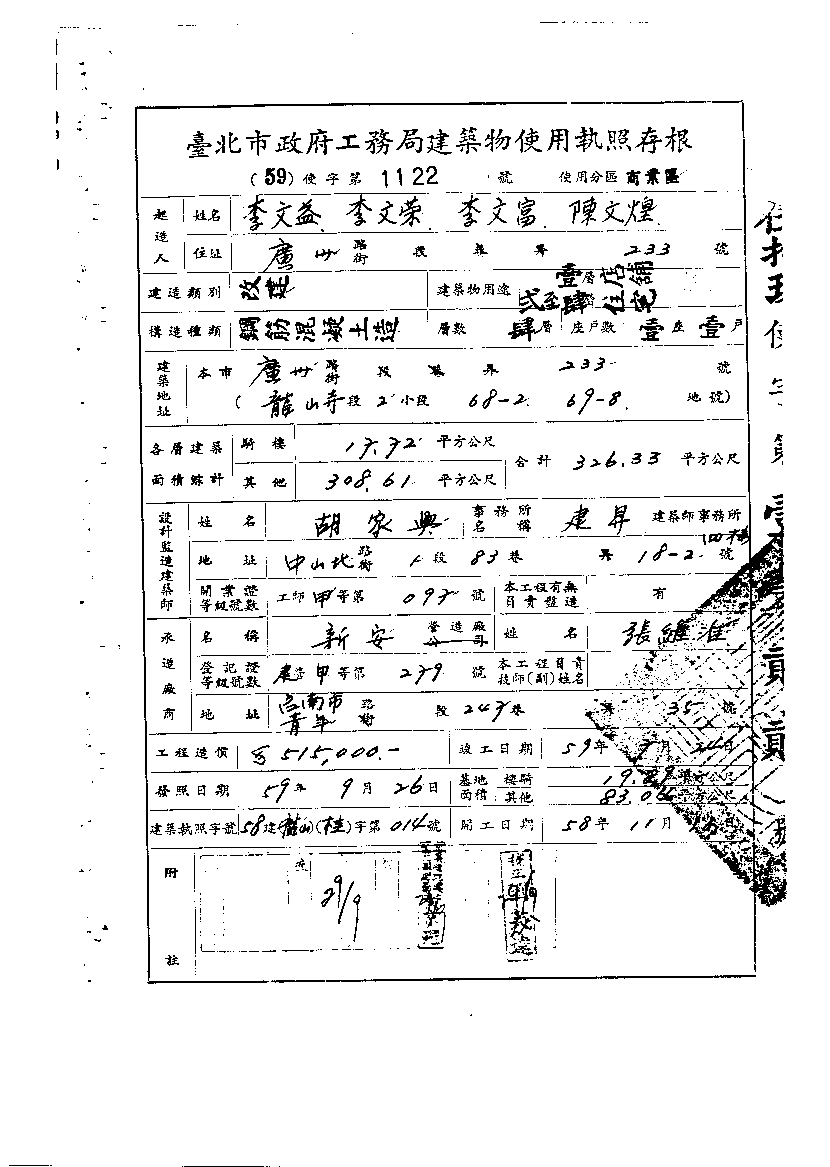 臺北市政府工務局建築物使用執照存根
(59)使字第 1122 號 使用分區 商業區
起造人 姓名 李文益、李文榮、李文富、陳文煌
住址 廣州 路街 段 巷 弄 233 號
建造類別 改建 建築物用途 壹層店舖 貳至肆層住宅
構造種類 鋼筋混凝土造 層數 肆層 座戶數 壹座壹戶
建築地址 本市 廣州 路街 段 巷 弄 233 號
(龍山寺段 2 小段 68-2. 69-8. 地號)
各層建築面積綜計 騎樓 17.72 平方公尺 合計 326.33 平方公尺
其他 308.61 平方公尺
設計監造建築師 姓名 胡家興 事務所名稱 建昇 建築師事務所
地址 中山北 路街 1 段 83 巷 弄 18-2 號 四樓
開業證等級號數 工師甲等第 097 號 本工程有無負責監造 有
承造廠商 名稱 新安 營造廠公司 姓名 張維淮
登記證等級號數 建造甲等第 279 號 本工程負責技師(副)姓名
地址 台南市青年 路街 段 247 巷 弄 35 號
工程造價 515,000.- 竣工日期 59年 月 24日
發照日期 59年 9月 26日 基地面積 騎樓 平方公尺
其他 83.04 平方公尺
建築執照字號 58建(龍山)(桂)字第 014 號 開工日期 58年 11月 日
附註
29/9